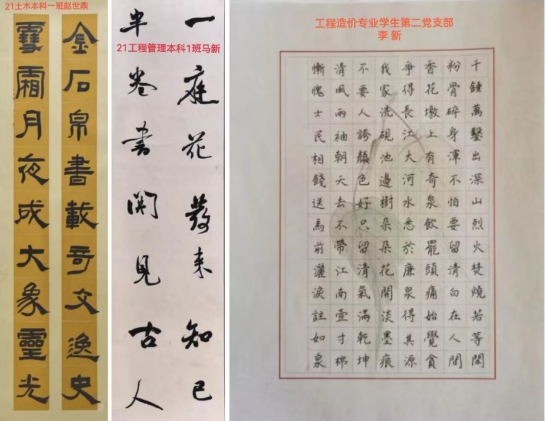 21土木本科一班赵世鼎
金石帛書載奇文逸史
雪霜月夜成大象靈光
21工程管理本科1班马新
一庭花發來知己
半卷書開見古人
工程造价专业学生第二党支部
李 新
千錘萬鑿出深山烈火焚燒若等閑
粉骨碎身渾不怕要留清白在人間
香花墩上有奇泉飲罷頭痛始覺貪
爭得長江大河水悉於廉泉得其源
我家洗硯池邊樹朵朵花開淡墨痕
不要人誇顏色好只留清氣滿乾坤
清風兩袖朝天去不帶江南壹寸棉
慚愧士民相錢送馬前灑淚註如泉